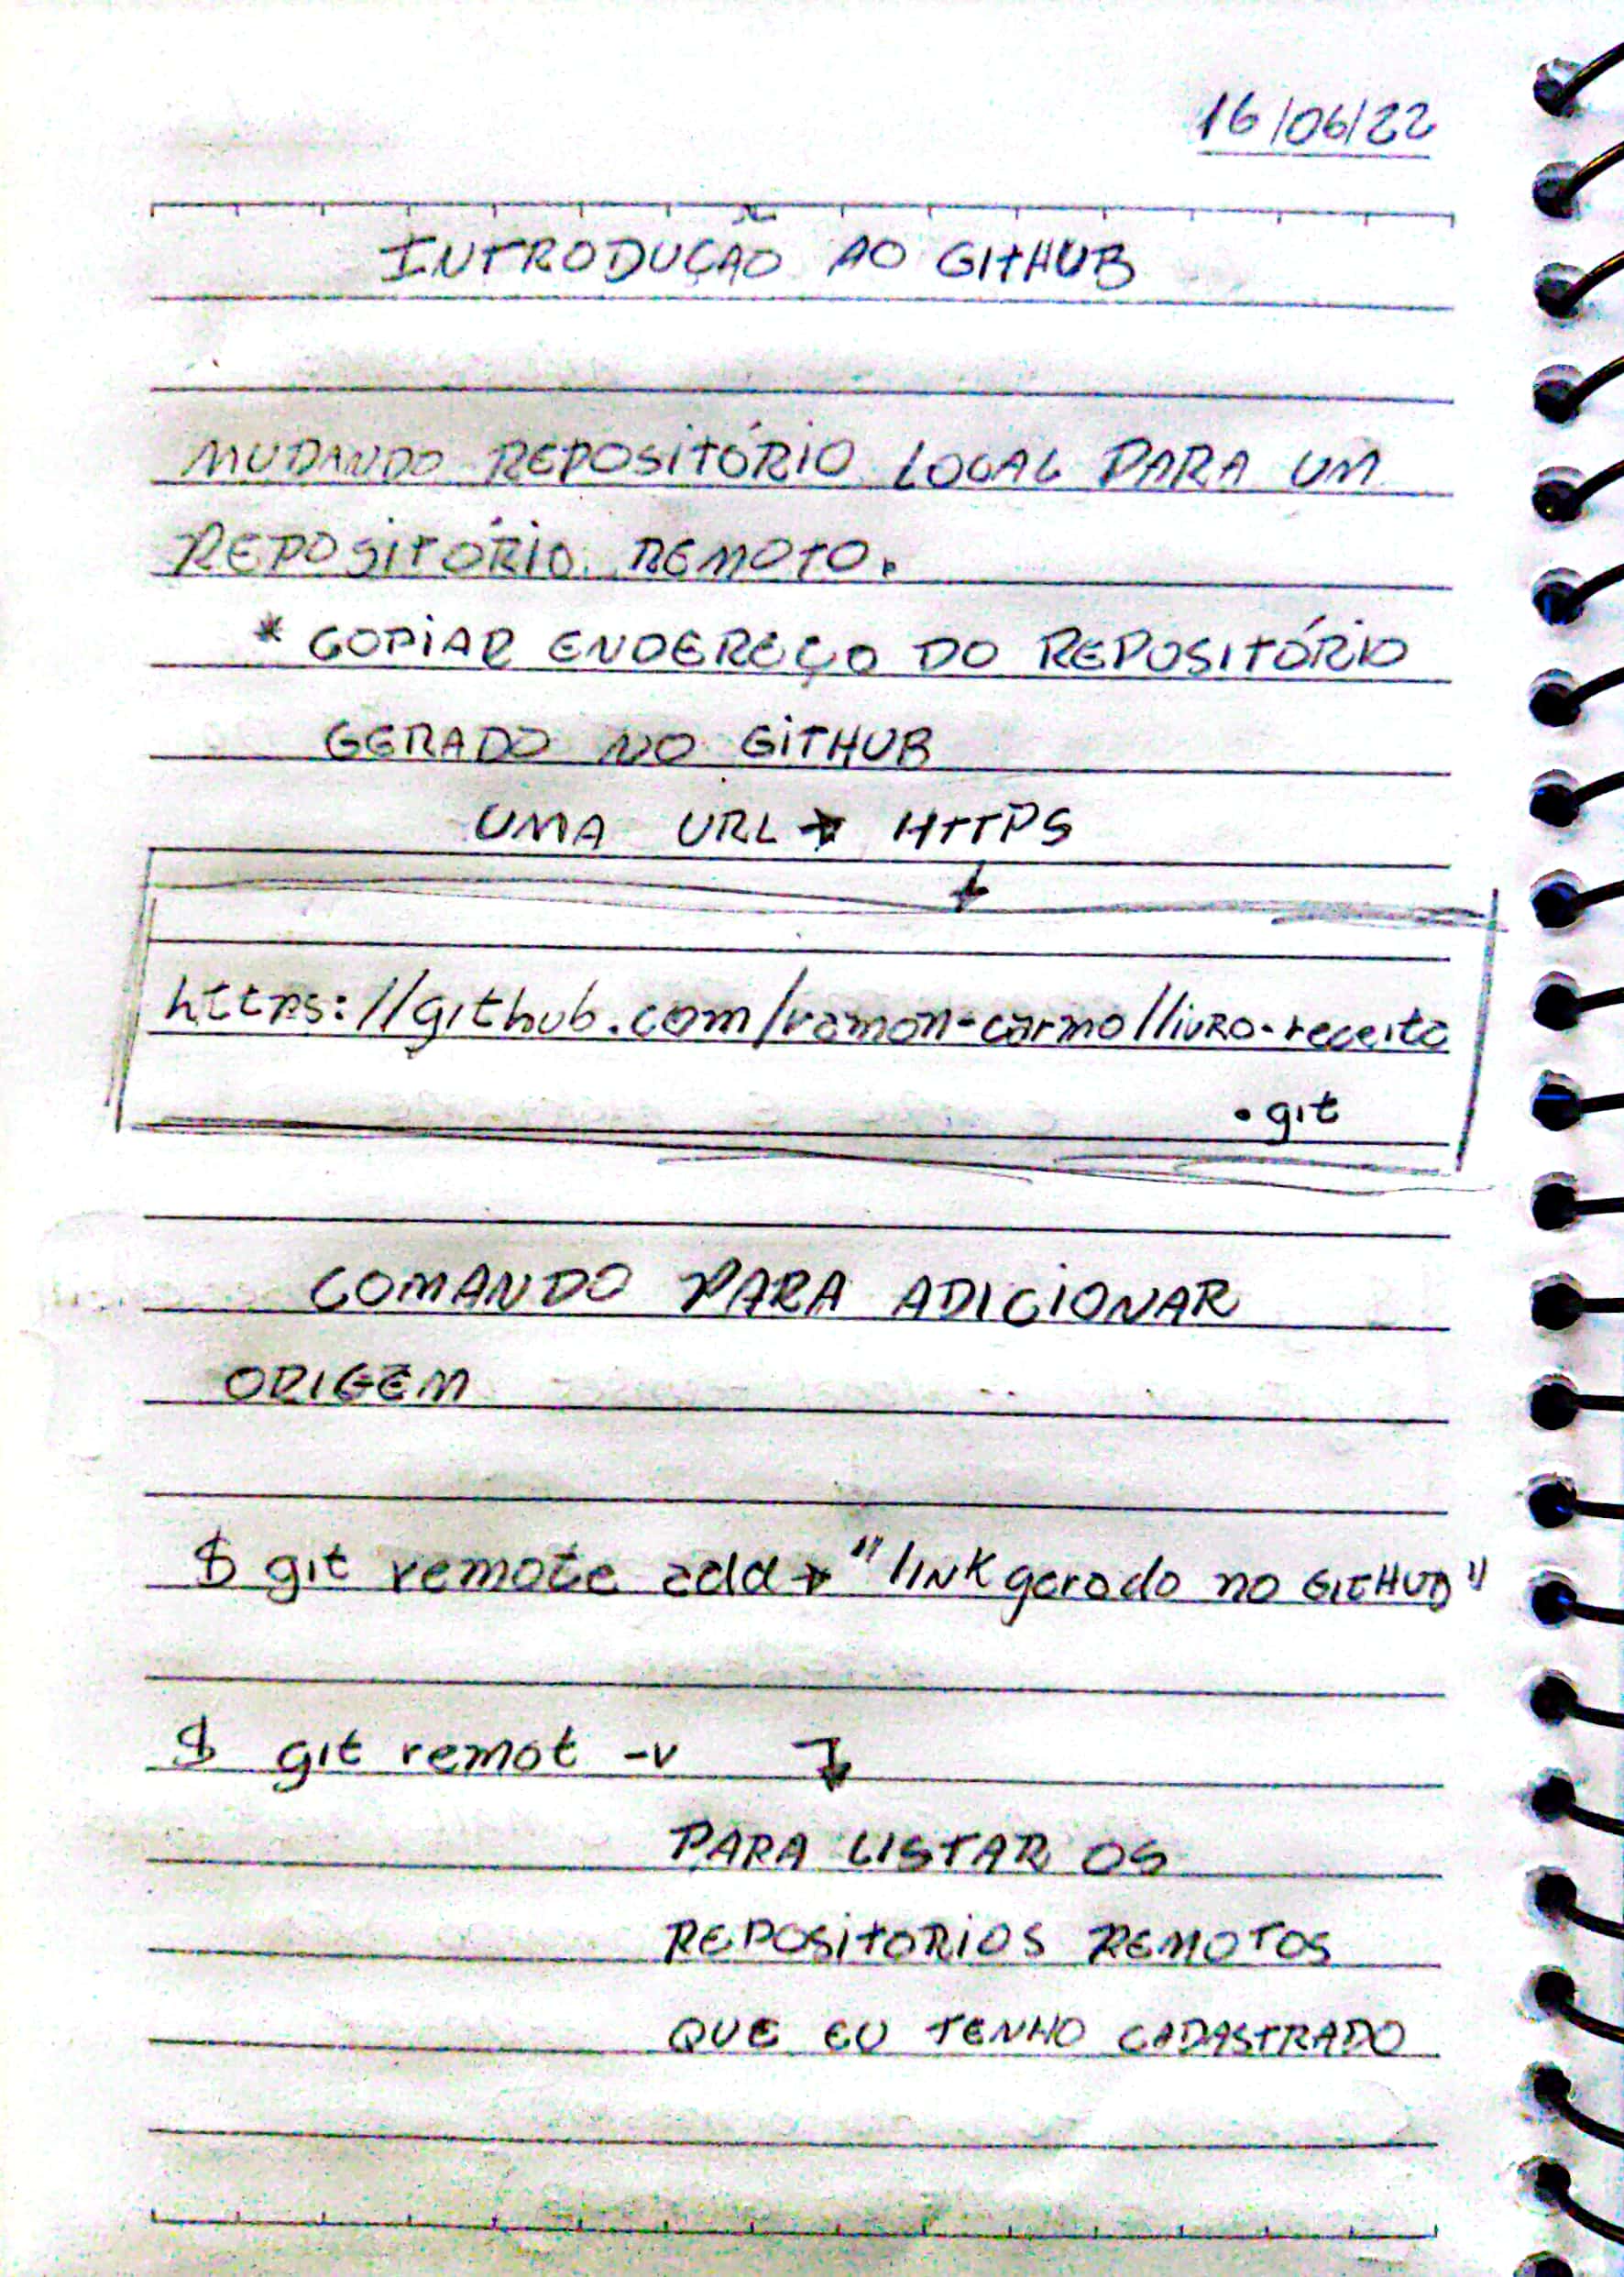 16/06/22
INTRODUÇÃO AO GITHUB
MUDANDO REPOSITÓRIO LOCAL PARA UM
REPOSITÓRIO REMOTO.
* COPIAR ENDEREÇO DO REPOSITÓRIO
GERADO NO GITHUB
UMA URL → HTTPS
↓
https://github.com/ramon-carmo/livro-receita
.git
COMANDO PARA ADICIONAR
ORIGEM
$ git remote add → "link gerado no GITHUB"
$ git remot -v ↓
PARA LISTAR OS
REPOSITORIOS REMOTOS
QUE EU TENHO CADASTRADO